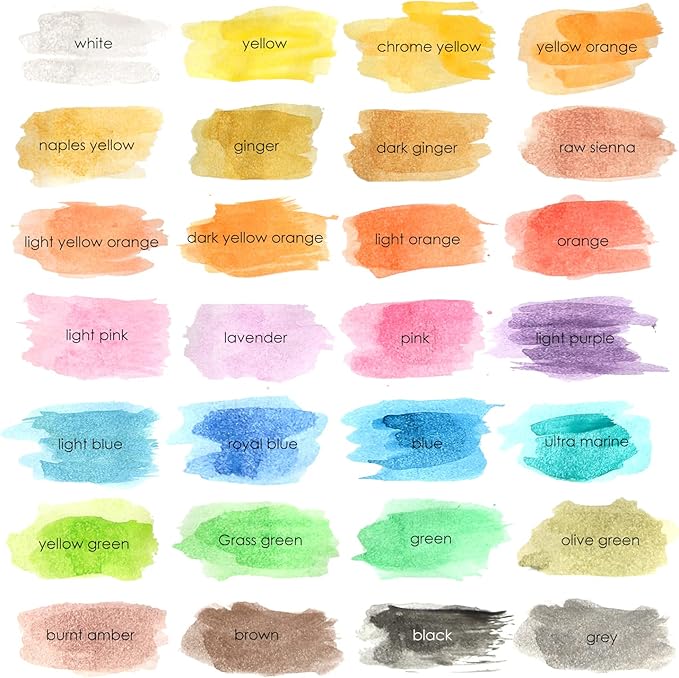 white
yellow
chrome yellow
yellow orange
naples yellow
ginger
dark ginger
raw sienna
light yellow orange
dark yellow orange
light orange
orange
light pink
lavender
pink
light purple
light blue
royal blue
blue
ultra marine
yellow green
Grass green
green
olive green
burnt amber
brown
black
grey